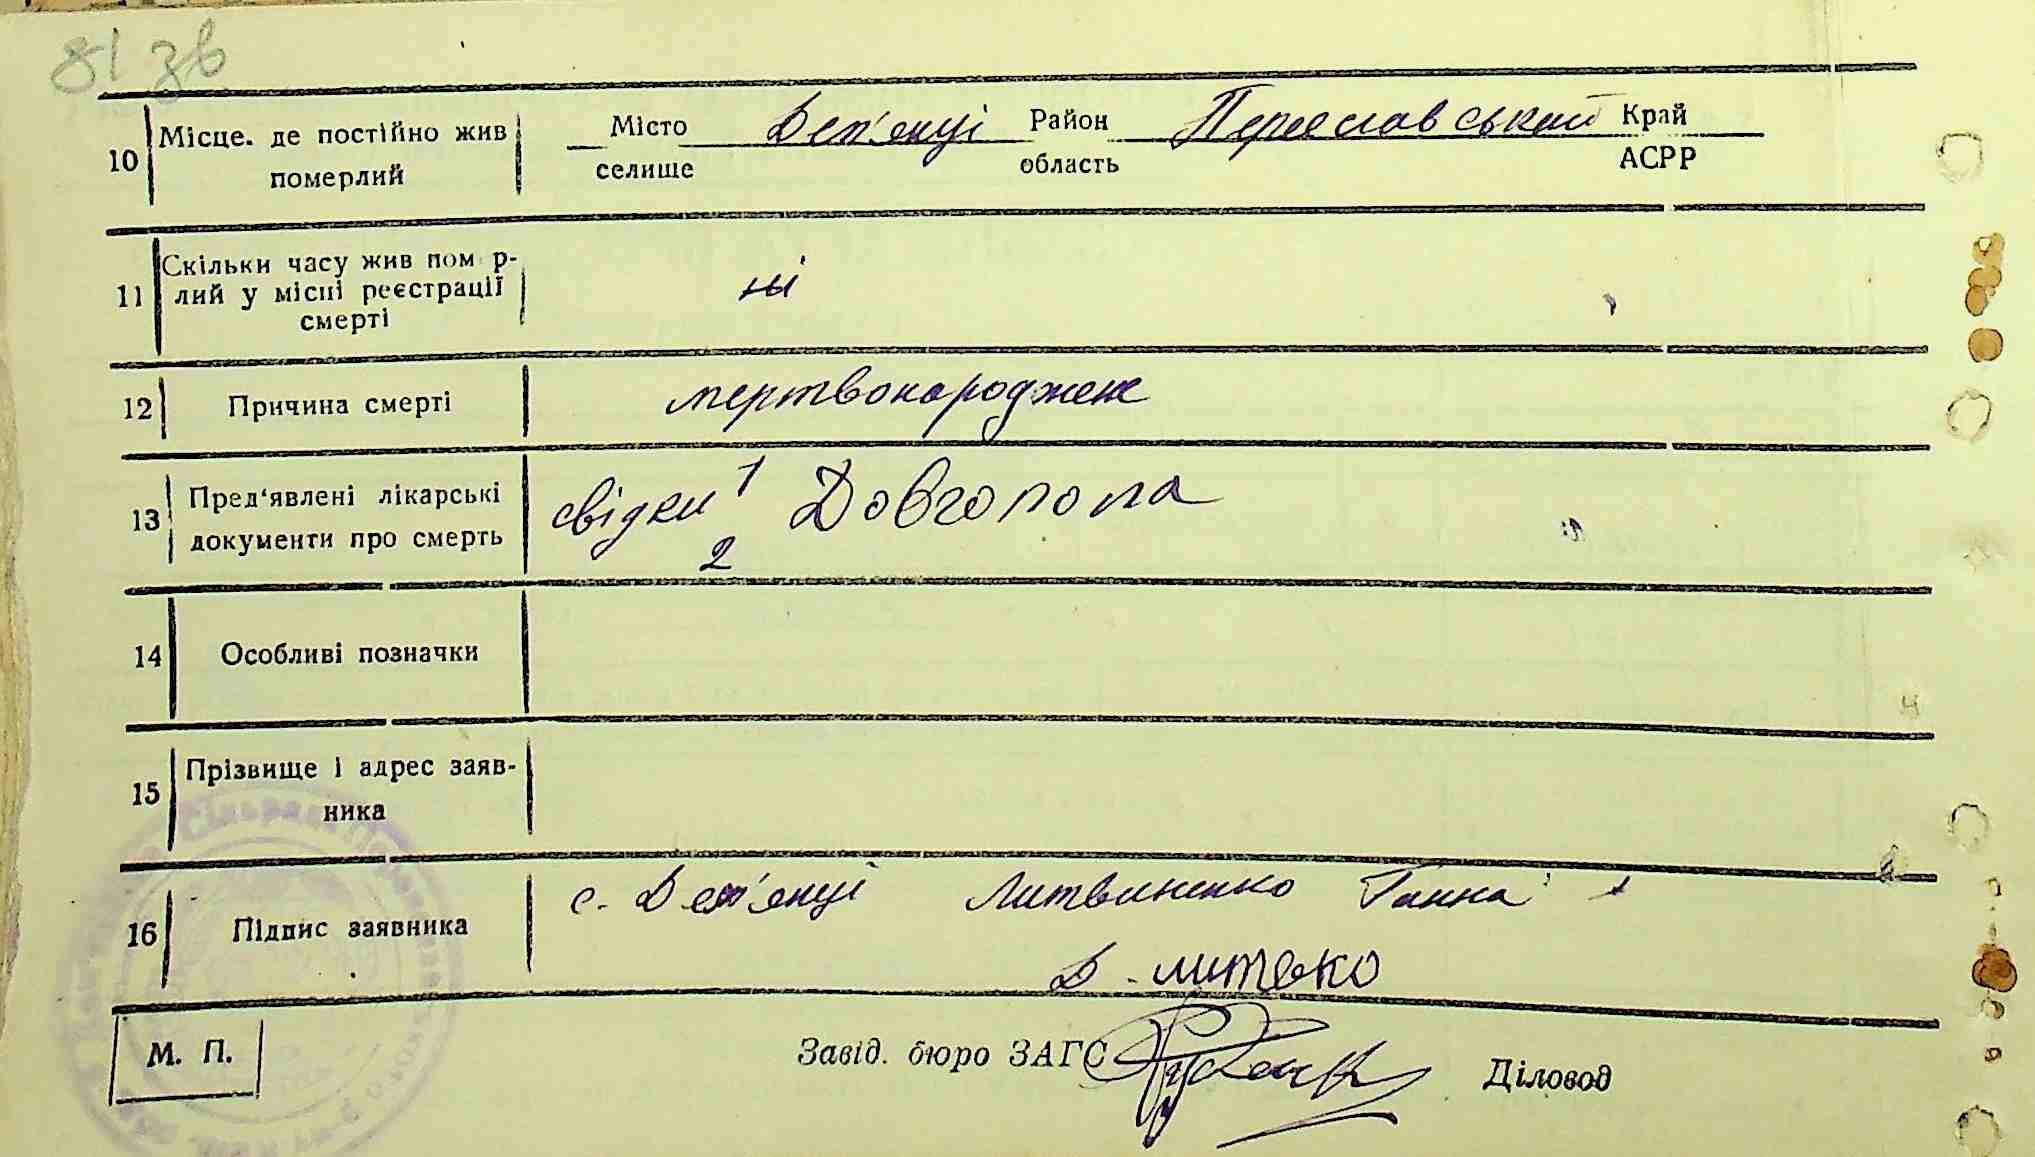 81 зв
10 Місце. де постійно жив померлий Місто селище Дем'янці Район область Переславський Край АСРР
11 Скільки часу жив пом р-
лий у місці реєстрації
смерті
ні
12 Причина смерті мертвонароджене
13 Пред'явлені лікарські
документи про смерть
свідки 1 Довгопола
2
14 Особливі позначки
15 Прізвище і адрес заяв-
ника
16 Підпис заявника с. Дем'янці Литвиненко Ганна
М. П.
Завід. бюро ЗАГС Діловод